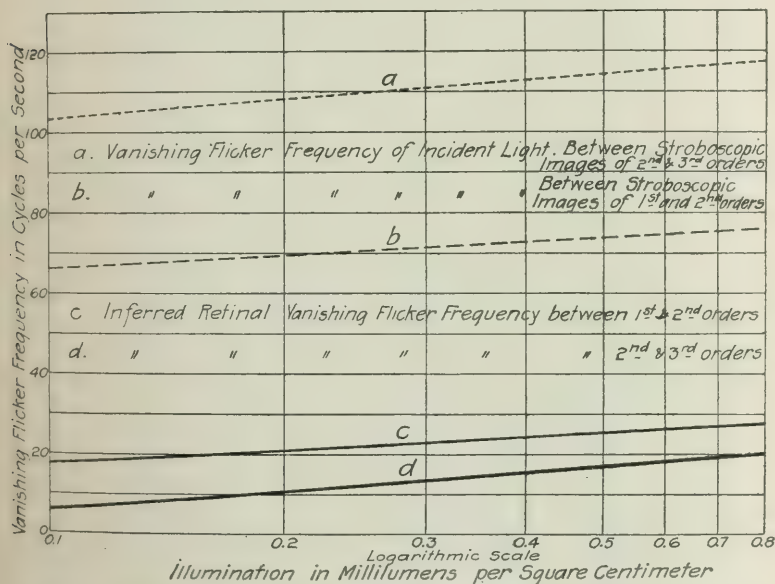 Vanishing Flicker Frequency in Cycles per Second
120
100
80
60
40
20
0
a
a. Vanishing Flicker Frequency of Incident Light. Between Stroboscopic
Images of 2nd & 3rd orders
b. " " " " " " Between Stroboscopic
Images of 1st and 2nd orders
b
c Inferred Retinal Vanishing Flicker Frequency between 1st & 2nd orders
d. " " " " " " 2nd & 3rd orders
c
d
0.1 0.2 0.3 0.4 0.5 0.6 0.7 0.8
Logarithmic Scale
Illumination in Millilumens per Square Centimeter